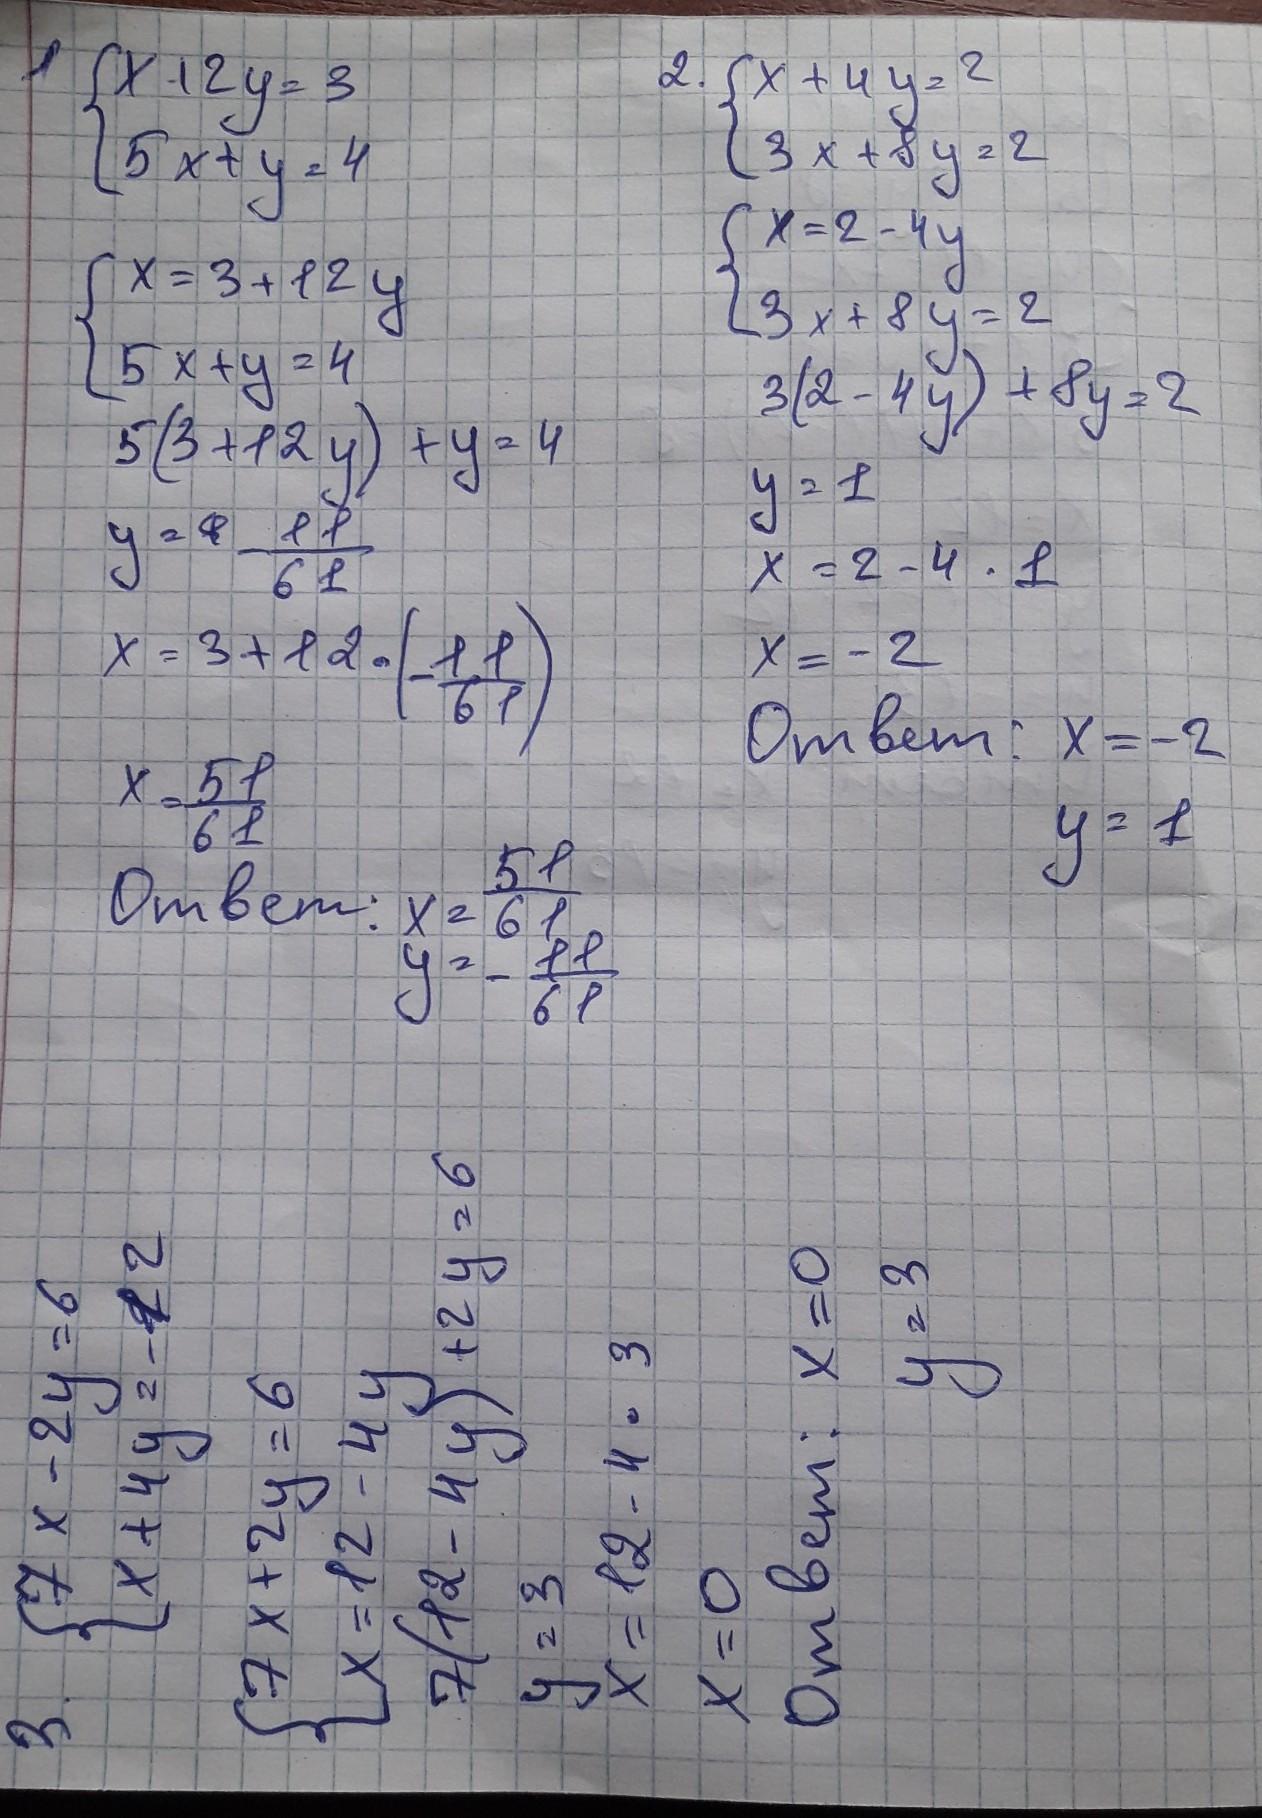 1 { x - 12y = 3
5x + y = 4
{ x = 3 + 12y
5x + y = 4
5(3 + 12y) + y = 4
y = - 11/61
x = 3 + 12 · (- 11/61)
x = 51/61
Ответ: x = 51/61
y = - 11/61
2. { x + 4y = 2
3x + 8y = 2
{ x = 2 - 4y
3x + 8y = 2
3(2 - 4y) + 8y = 2
y = 1
x = 2 - 4 · 1
x = - 2
Ответ: x = - 2
y = 1
3. { 7x - 2y = 6
x + 4y = - 12
{ 7x + 2y = 6
x = 12 - 4y
7(12 - 4y) + 2y = 6
y = 3
x = 12 - 4 · 3
x = 0
Ответ: x = 0
y = 3